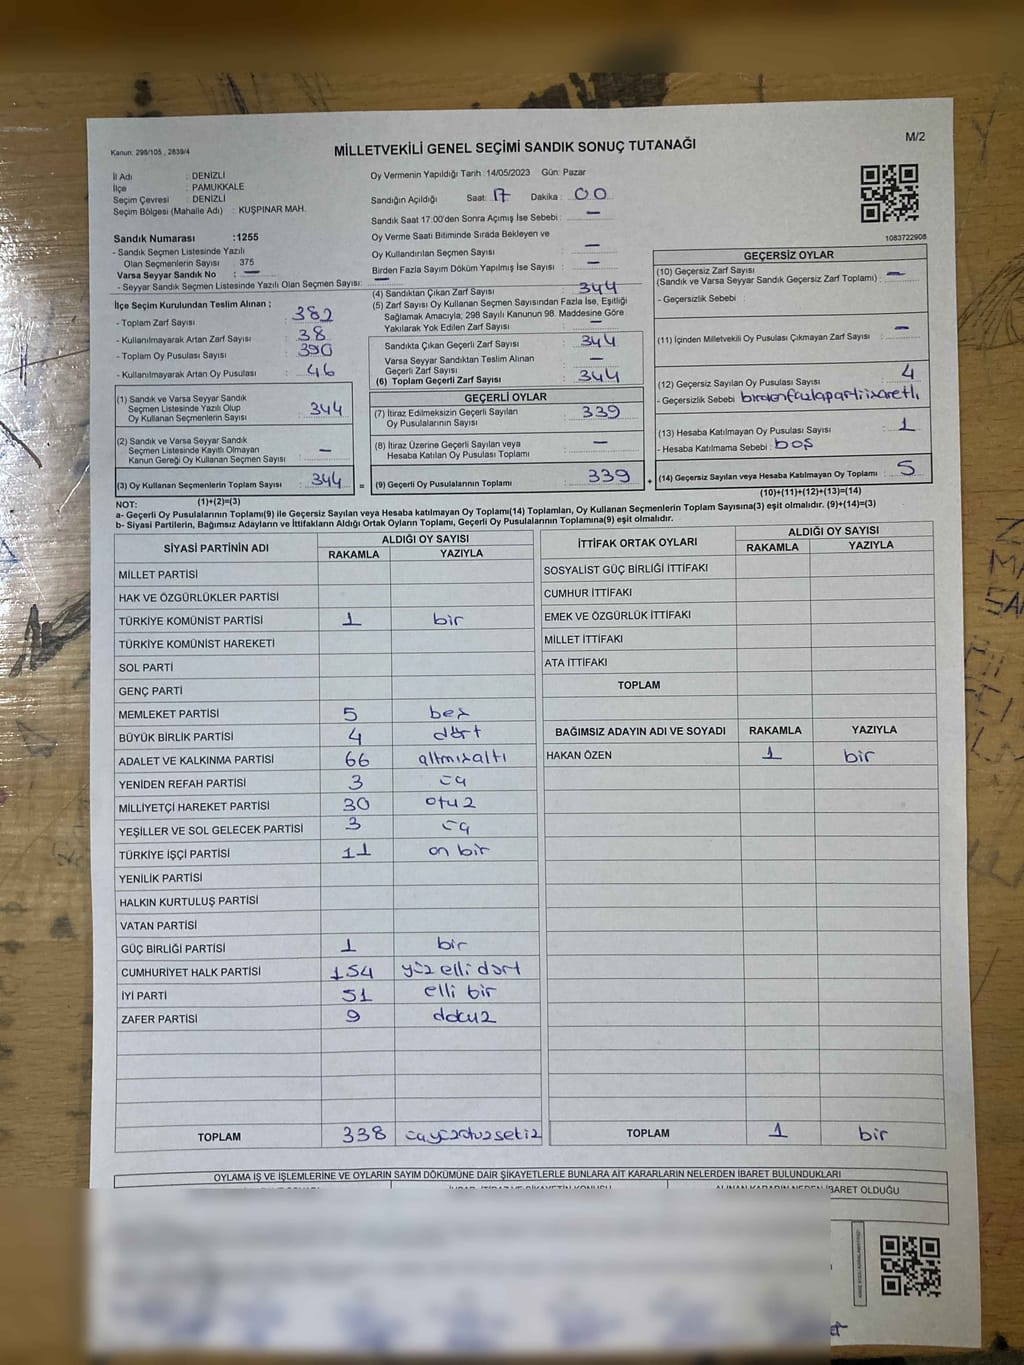 Kanun: 298/105 , 2839/4
MİLLETVEKİLİ GENEL SEÇİMİ SANDIK SONUÇ TUTANAĞI
M/2
İl Adı : DENİZLİ
İlçe : PAMUKKALE
Seçim Çevresi : DENİZLİ
Seçim Bölgesi (Mahalle Adı) : KUŞPINAR MAH.
Sandık Numarası :1255
- Sandık Seçmen Listesinde Yazılı
Olan Seçmenlerin Sayısı : 375
Varsa Seyyar Sandık No : —
- Seyyar Sandık Seçmen Listesinde Yazılı Olan Seçmen Sayısı: —
Oy Vermenin Yapıldığı Tarih :14/05/2023 Gün: Pazar
Sandığın Açıldığı Saat: 17 Dakika : 00
Sandık Saat 17:00'den Sonra Açımış İse Sebebi : —
Oy Verme Saati Bitiminde Sırada Bekleyen ve
Oy Kullandırılan Seçmen Sayısı : —
Birden Fazla Sayım Döküm Yapılmış İse Sayısı : —
1083722908
İlçe Seçim Kurulundan Teslim Alınan ;
- Toplam Zarf Sayısı : 382
- Kullanılmayarak Artan Zarf Sayısı : 38
- Toplam Oy Pusulası Sayısı : 390
- Kullanılmayarak Artan Oy Pusulası : 46
(1) Sandık ve Varsa Seyyar Sandık
Seçmen Listesinde Yazılı Olup
Oy Kullanan Seçmenlerin Sayısı : 344
(2) Sandık ve Varsa Seyyar Sandık
Seçmen Listesinde Kayıtlı Olmayan
Kanun Gereği Oy Kullanan Seçmen Sayısı : —
(3) Oy Kullanan Seçmenlerin Toplam Sayısı : 344
(1)+(2)=(3)
(4) Sandıktan Çıkan Zarf Sayısı : 344
(5) Zarf Sayısı Oy Kullanan Seçmen Sayısından Fazla İse, Eşitliği
Sağlamak Amacıyla; 298 Sayılı Kanunun 98. Maddesine Göre
Yakılarak Yok Edilen Zarf Sayısı : —
Sandıkta Çıkan Geçerli Zarf Sayısı : 344
Varsa Seyyar Sandıktan Teslim Alınan
Geçerli Zarf Sayısı : —
(6) Toplam Geçerli Zarf Sayısı : 344
GEÇERLİ OYLAR
(7) İtiraz Edilmeksizin Geçerli Sayılan
Oy Pusulalarının Sayısı : 339
(8) İtiraz Üzerine Geçerli Sayılan veya
Hesaba Katılan Oy Pusulası Toplamı : —
= (9) Geçerli Oy Pusulalarının Toplamı : 339
GEÇERSİZ OYLAR
(10) Geçersiz Zarf Sayısı
(Sandık ve Varsa Seyyar Sandık Geçersiz Zarf Toplamı) : —
- Geçersizlik Sebebi :
(11) İçinden Milletvekili Oy Pusulası Çıkmayan Zarf Sayısı : —
(12) Geçersiz Sayılan Oy Pusulası Sayısı : 4
- Geçersizlik Sebebi birden fazla parti işaretli
(13) Hesaba Katılmayan Oy Pusulası Sayısı : 1
- Hesaba Katılmama Sebebi : boş
+ (14) Geçersiz Sayılan veya Hesaba Katılmayan Oy Toplamı : 5
(10)+(11)+(12)+(13)=(14)
NOT:
a- Geçerli Oy Pusulalarının Toplamı(9) ile Geçersiz Sayılan veya Hesaba katılmayan Oy Toplamı(14) Toplamları, Oy Kullanan Seçmenlerin Toplam Sayısına(3) eşit olmalıdır. (9)+(14)=(3)
b- Siyasi Partilerin, Bağımsız Adayların ve İttifakların Aldığı Ortak Oyların Toplamı, Geçerli Oy Pusulalarının Toplamına(9) eşit olmalıdır.
SİYASİ PARTİNİN ADI ALDIĞI OY SAYISI
RAKAMLA YAZIYLA
MİLLET PARTİSİ
HAK VE ÖZGÜRLÜKLER PARTİSİ
TÜRKİYE KOMÜNİST PARTİSİ 1 bir
TÜRKİYE KOMÜNİST HAREKETİ
SOL PARTİ
GENÇ PARTİ
MEMLEKET PARTİSİ 5 beş
BÜYÜK BİRLİK PARTİSİ 4 dört
ADALET VE KALKINMA PARTİSİ 66 altmışaltı
YENİDEN REFAH PARTİSİ 3 üç
MİLLİYETÇİ HAREKET PARTİSİ 30 otuz
YEŞİLLER VE SOL GELECEK PARTİSİ 3 üç
TÜRKİYE İŞÇİ PARTİSİ 11 on bir
YENİLİK PARTİSİ
HALKIN KURTULUŞ PARTİSİ
VATAN PARTİSİ
GÜÇ BİRLİĞİ PARTİSİ 1 bir
CUMHURİYET HALK PARTİSİ 154 yüz elli dört
İYİ PARTİ 51 elli bir
ZAFER PARTİSİ 9 dokuz
TOPLAM 338 üçyüzotuzsekiz
İTTİFAK ORTAK OYLARI ALDIĞI OY SAYISI
RAKAMLA YAZIYLA
SOSYALİST GÜÇ BİRLİĞİ İTTİFAKI
CUMHUR İTTİFAKI
EMEK VE ÖZGÜRLÜK İTTİFAKI
MİLLET İTTİFAKI
ATA İTTİFAKI
TOPLAM
BAĞIMSIZ ADAYIN ADI VE SOYADI RAKAMLA YAZIYLA
HAKAN ÖZEN 1 bir
TOPLAM 1 bir
OYLAMA İŞ VE İŞLEMLERİNE VE OYLARIN SAYIM DÖKÜMÜNE DAİR ŞİKAYETLERLE BUNLARA AİT KARARLARIN NELERDEN İBARET BULUNDUKLARI
İBARET OLDUĞU